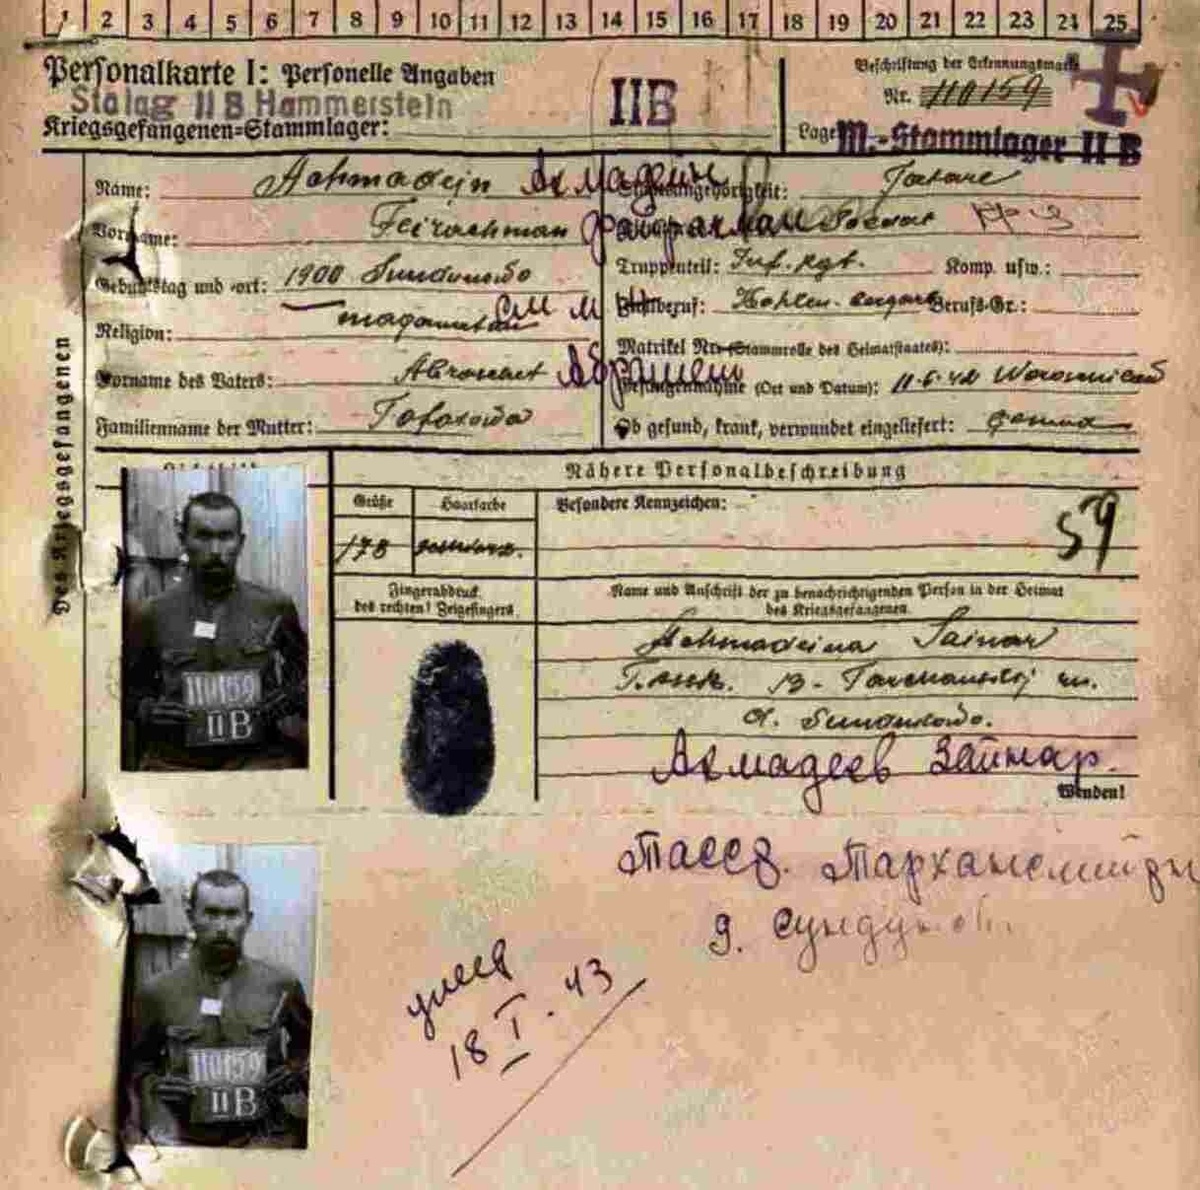 1 2 3 4 5 6 7 8 9 10 11 12 13 14 15 16 17 18 19 20 21 22 23 24 25
Personalkarte I: Personelle Angaben
Stalag II B Hammerstein
Kriegsgefangenen-Stammlager:
IIB
Beschriftung der Erkennungsmarke
Nr. 110159
Lager M.-Stammlager II B
Des Kriegsgefangenen
Name: Achmadejn Ахмадеин
Staatsangehörigkeit: Tatare
Vorname: Feirachman Файрахман
Geburtstag und -ort: 1900 Sundukowo
Truppenteil: Inf. Rgt. Komp. usw.:
Religion:
Zivilberuf: Berufs-Gr.:
Matrikel Nr. (Stammrolle des Heimatstaates):
Vorname des Vaters:
Gefangennahme (Ort und Datum): 11.6.42
Familienname der Mutter:
Ob gesund, krank, verwundet eingeliefert: gesund
Nähere Personalbeschreibung
Größe Haarfarbe Besondere Kennzeichen:
178 schwarz. 59
Fingerabdruck
des rechten! Zeigefingers
Name und Anschrift der zu benachrichtigenden Person in der Heimat
des Kriegsgefangenen
Achmadeina Sainar
T.
d. Sundukowo.
Ахмадеев Зайнар.
Wenden!
110159
IIB
Тассв. Тарханский рн
д. Сундуков
умер
18 I. 43
110159
IIB